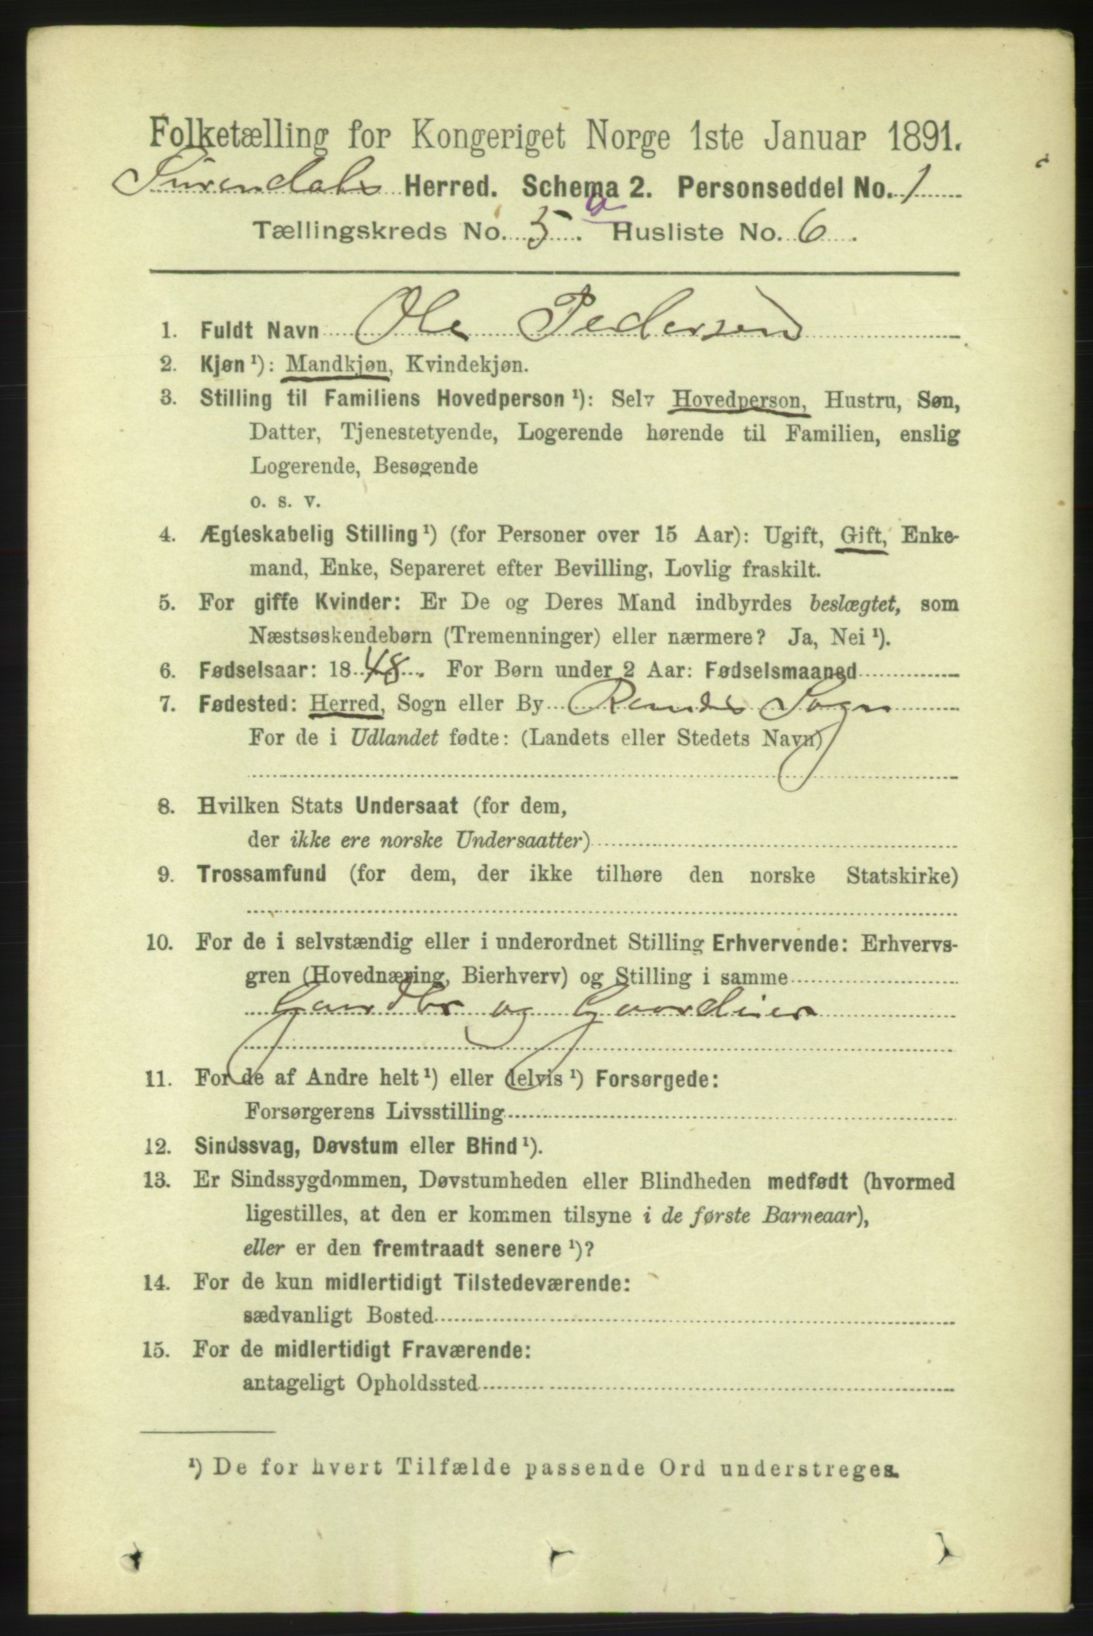 Folketælling for Kongeriget Norge 1ste Januar 1891.
Surendals Herred. Schema 2. Personseddel No. 1
Tællingskreds No. 5 a. Husliste No. 6.
1. Fuldt Navn Ole Pedersen
2. Kjøn ¹): Mandkjøn, Kvindekjøn.
3. Stilling til Familiens Hovedperson ¹): Selv Hovedperson, Hustru, Søn,
Datter, Tjenestetyende, Logerende hørende til Familien, enslig
Logerende, Besøgende
o. s. v.
4. Ægteskabelig Stilling ¹) (for Personer over 15 Aar): Ugift, Gift, Enke-
mand, Enke, Separeret efter Bevilling, Lovlig fraskilt.
5. For gifte Kvinder: Er De og Deres Mand indbyrdes beslægtet, som
Næstsøskendebørn (Tremenninger) eller nærmere? Ja, Nei ¹).
6. Fødselsaar: 1848. For Børn under 2 Aar: Fødselsmaaned
7. Fødested: Herred, Sogn eller By Rindals Sogn
For de i Udlandet fødte: (Landets eller Stedets Navn)
8. Hvilken Stats Undersaat (for dem,
der ikke ere norske Undersaatter)
9. Trossamfund (for dem, der ikke tilhøre den norske Statskirke)
10. For de i selvstændig eller i underordnet Stilling Erhvervende: Erhvervs-
gren (Hovednæring, Bierhverv) og Stilling i samme
Gaardbr og Gaardeier
11. For de af Andre helt ¹) eller delvis ¹) Forsørgede:
Forsørgerens Livsstilling
12. Sindssvag, Døvstum eller Blind ¹).
13. Er Sindssygdommen, Døvstumheden eller Blindheden medfødt (hvormed
ligestilles, at den er kommen tilsyne i de første Barneaar),
eller er den fremtraadt senere ¹)?
14. For de kun midlertidigt Tilstedeværende:
sædvanligt Bosted
15. For de midlertidigt Fraværende:
antageligt Opholdssted
¹) De for hvert Tilfælde passende Ord understreges.